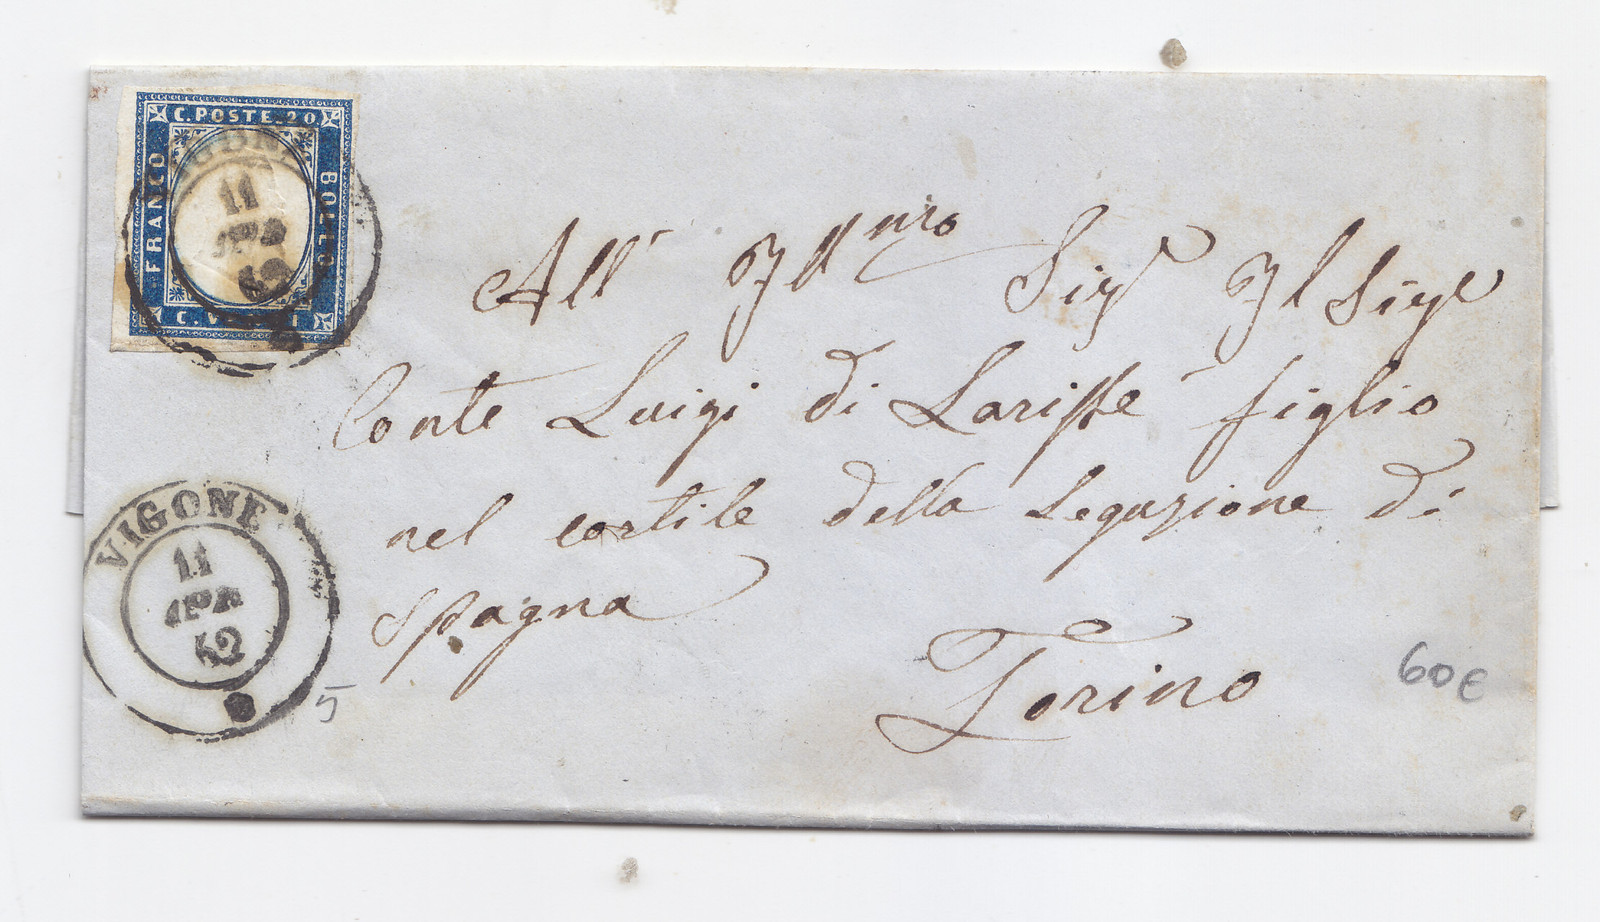 C. POSTE. 20
FRANCO
BOLLO
C. VENTI
VIGONE
11
APR
62
All' Illmo Sigr Il Sigr
Conte Luigi di Larissé figlio
nel cortile della Legazione di
Spagna
Torino
VIGONE
11
APR
62
5
60€